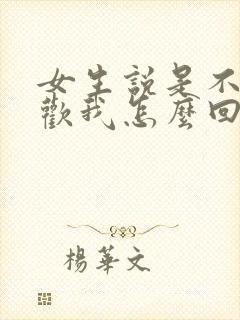 女生說是不
歡我怎麼回
楊華文